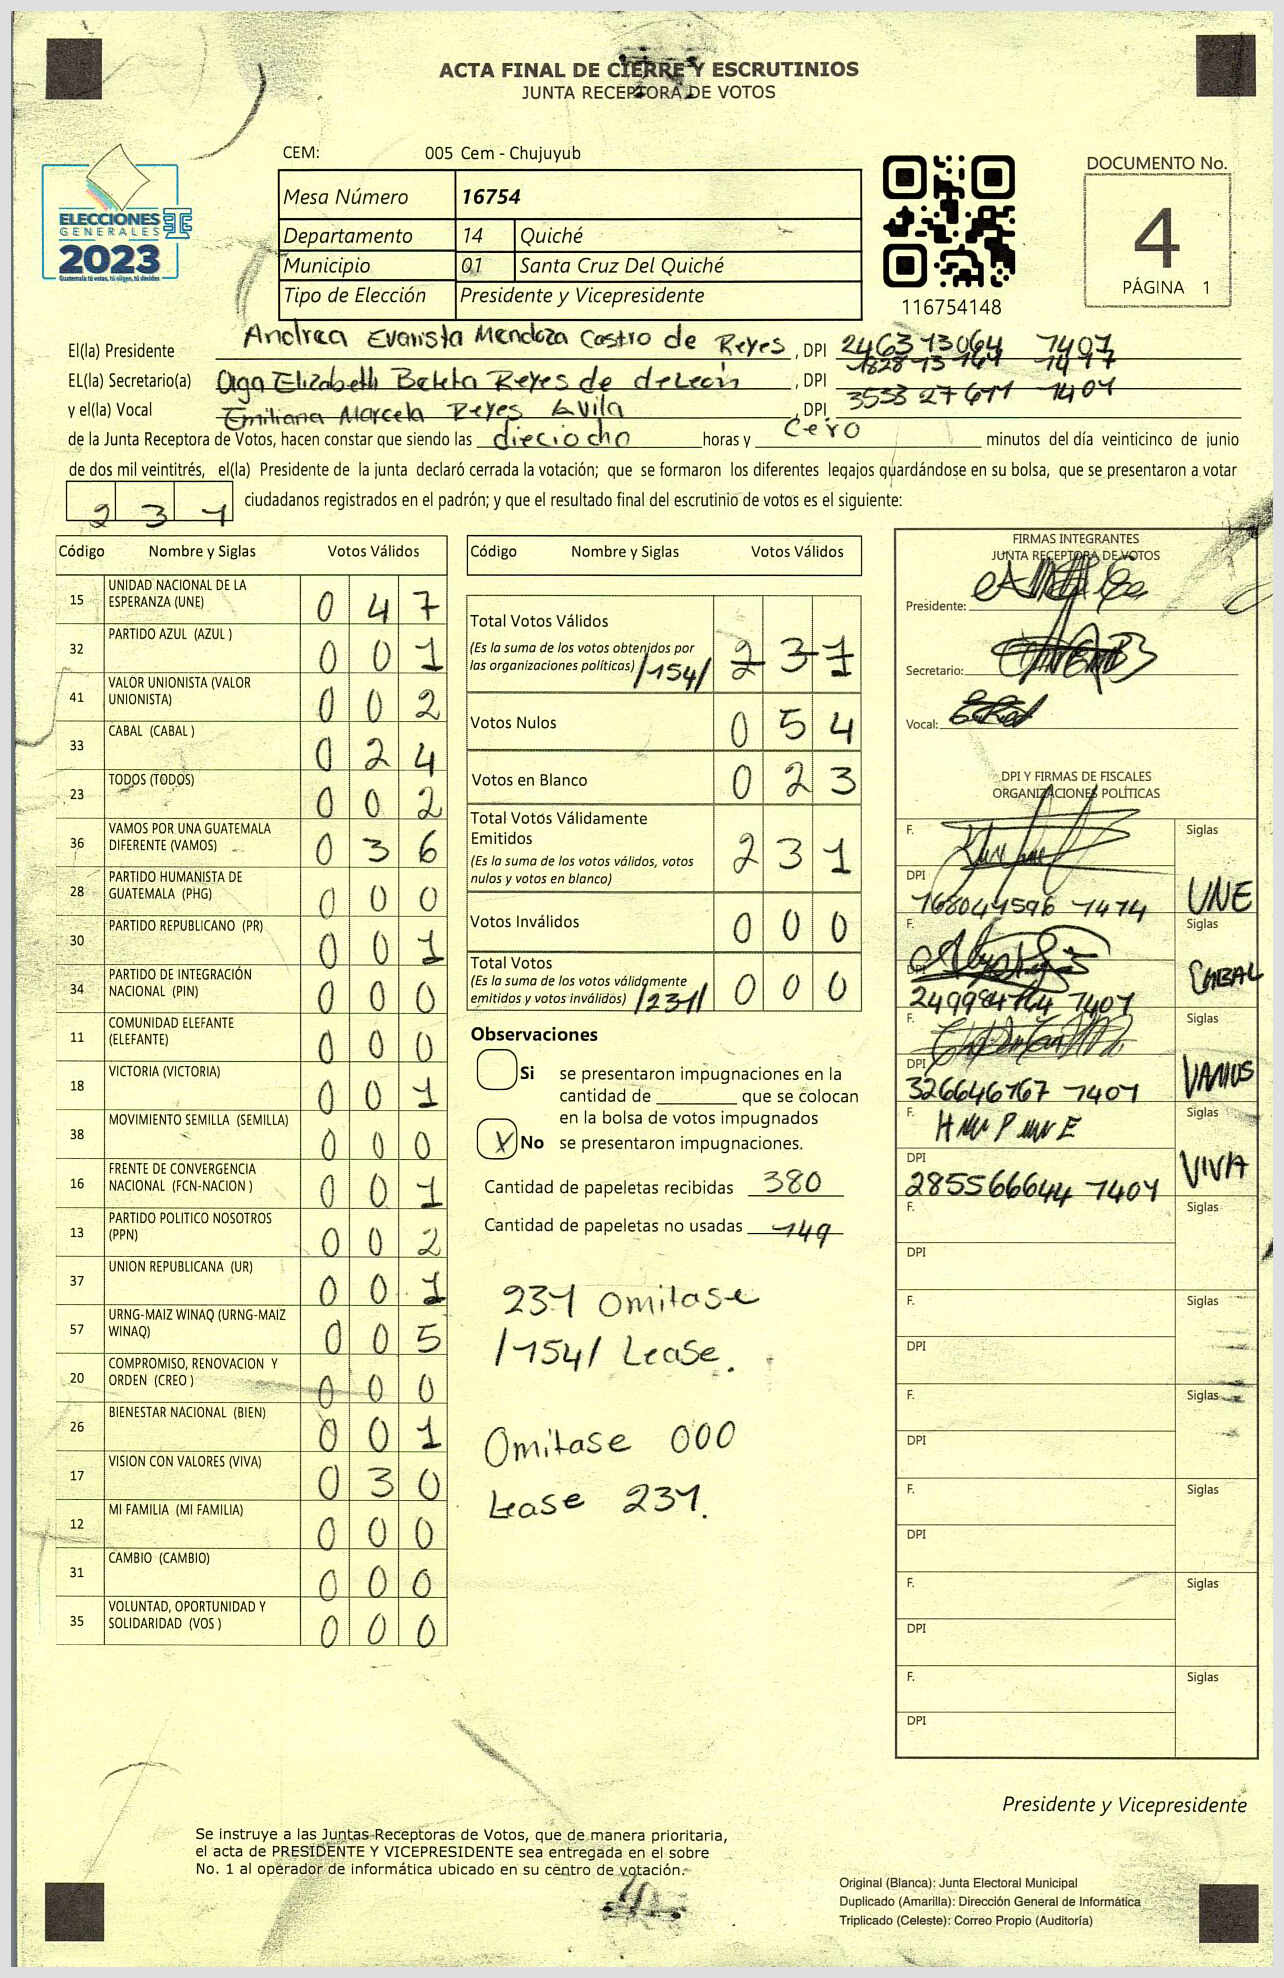 ACTA FINAL DE CIERRE Y ESCRUTINIOS
JUNTA RECEPTORA DE VOTOS
CEM: 005 Cem - Chujuyub
ELECCIONES
GENERALES
2023
Guatemala tú votas, tú eliges, tú decides
Mesa Número 16754
Departamento 14 Quiché
Municipio 01 Santa Cruz Del Quiché
Tipo de Elección Presidente y Vicepresidente
116754148
DOCUMENTO No.
4
PÁGINA 1
El(la) Presidente Andrea Evarista Mendoza Castro de Reyes, DPI 2463 13064 1407
EL(la) Secretario(a) Olga Elizabeth Beteta Reyes de deLeón, DPI
y el(la) Vocal Emiliana Marcela Reyes Avila, DPI 3533 27611 1401
de la Junta Receptora de Votos, hacen constar que siendo las dieciocho horas y Cero minutos del día veinticinco de junio
de dos mil veintitrés, el(la) Presidente de la junta declaró cerrada la votación; que se formaron los diferentes legajos guardándose en su bolsa, que se presentaron a votar
2 3 1 ciudadanos registrados en el padrón; y que el resultado final del escrutinio de votos es el siguiente:
Código Nombre y Siglas Votos Válidos
15 UNIDAD NACIONAL DE LA ESPERANZA (UNE) 0 4 7
32 PARTIDO AZUL (AZUL ) 0 0 1
41 VALOR UNIONISTA (VALOR UNIONISTA) 0 0 2
33 CABAL (CABAL ) 0 2 4
23 TODOS (TODOS) 0 0 2
36 VAMOS POR UNA GUATEMALA DIFERENTE (VAMOS) 0 3 6
28 PARTIDO HUMANISTA DE GUATEMALA (PHG) 0 0 0
30 PARTIDO REPUBLICANO (PR) 0 0 1
34 PARTIDO DE INTEGRACIÓN NACIONAL (PIN) 0 0 0
11 COMUNIDAD ELEFANTE (ELEFANTE) 0 0 0
18 VICTORIA (VICTORIA) 0 0 1
38 MOVIMIENTO SEMILLA (SEMILLA) 0 0 0
16 FRENTE DE CONVERGENCIA NACIONAL (FCN-NACION ) 0 0 1
13 PARTIDO POLITICO NOSOTROS (PPN) 0 0 2
37 UNION REPUBLICANA (UR) 0 0 1
57 URNG-MAIZ WINAQ (URNG-MAIZ WINAQ) 0 0 5
20 COMPROMISO, RENOVACION Y ORDEN (CREO ) 0 0 0
26 BIENESTAR NACIONAL (BIEN) 0 0 1
17 VISION CON VALORES (VIVA) 0 3 0
12 MI FAMILIA (MI FAMILIA) 0 0 0
31 CAMBIO (CAMBIO) 0 0 0
35 VOLUNTAD, OPORTUNIDAD Y SOLIDARIDAD (VOS ) 0 0 0
Código Nombre y Siglas Votos Válidos
Total Votos Válidos 2 3 1
(Es la suma de los votos obtenidos por
las organizaciones políticas) /154/
Votos Nulos 0 5 4
Votos en Blanco 0 2 3
Total Votos Válidamente
Emitidos 2 3 1
(Es la suma de los votos válidos, votos
nulos y votos en blanco)
Votos Inválidos 0 0 0
Total Votos
(Es la suma de los votos válidamente
emitidos y votos inválidos) /231/ 0 0 0
Observaciones
Si se presentaron impugnaciones en la
cantidad de ________ que se colocan
en la bolsa de votos impugnados
X No se presentaron impugnaciones.
Cantidad de papeletas recibidas 380
Cantidad de papeletas no usadas 149
231 Omitase
/154/ Lease.
Omitase 000
Lease 231.
FIRMAS INTEGRANTES
JUNTA RECEPTORA DE VOTOS
Presidente:
Secretario:
Vocal:
DPI Y FIRMAS DE FISCALES
ORGANIZACIONES POLÍTICAS
F. Siglas
DPI 168041596 1414 UNE
F. Siglas
DPI CABAL
F. Siglas
DPI 326646767 1401 VAMOS
F. Siglas
DPI 285566644 1401 VIVA
F. Siglas
DPI
F. Siglas
DPI
F. Siglas
DPI
F. Siglas
DPI
F. Siglas
DPI
F. Siglas
DPI
Presidente y Vicepresidente
Se instruye a las Juntas Receptoras de Votos, que de manera prioritaria,
el acta de PRESIDENTE Y VICEPRESIDENTE sea entregada en el sobre
No. 1 al operador de informática ubicado en su centro de votación.
Original (Blanca): Junta Electoral Municipal
Duplicado (Amarilla): Dirección General de Informática
Triplicado (Celeste): Correo Propio (Auditoría)